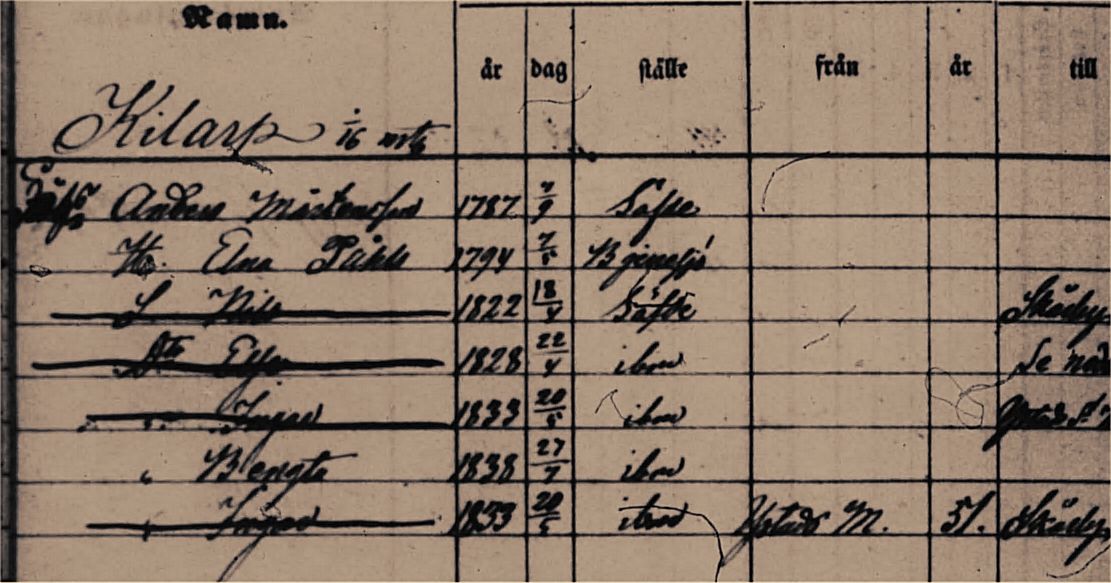 Namn.
år dag ställe från år till
Kilarp 1/16 mtl
Anders Mårtensson 1787 7/9 Säfde
H. Elna Påhls 1794 7/5 Bjeresjö
S. Nils 1822 18/4 Säfde Skårby
Dtr Elsa 1828 22/4 ibm Se ned
" Inger 1833 20/5 ibm
" Bengta 1838 27/7 ibm
" Inger 1833 20/5 ibm Ystads M. 51. Skårby